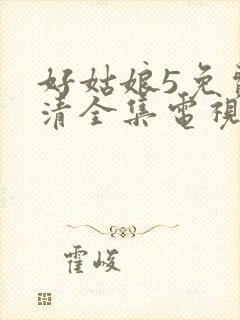 好姑娘5免費
清全集電視
霍峻